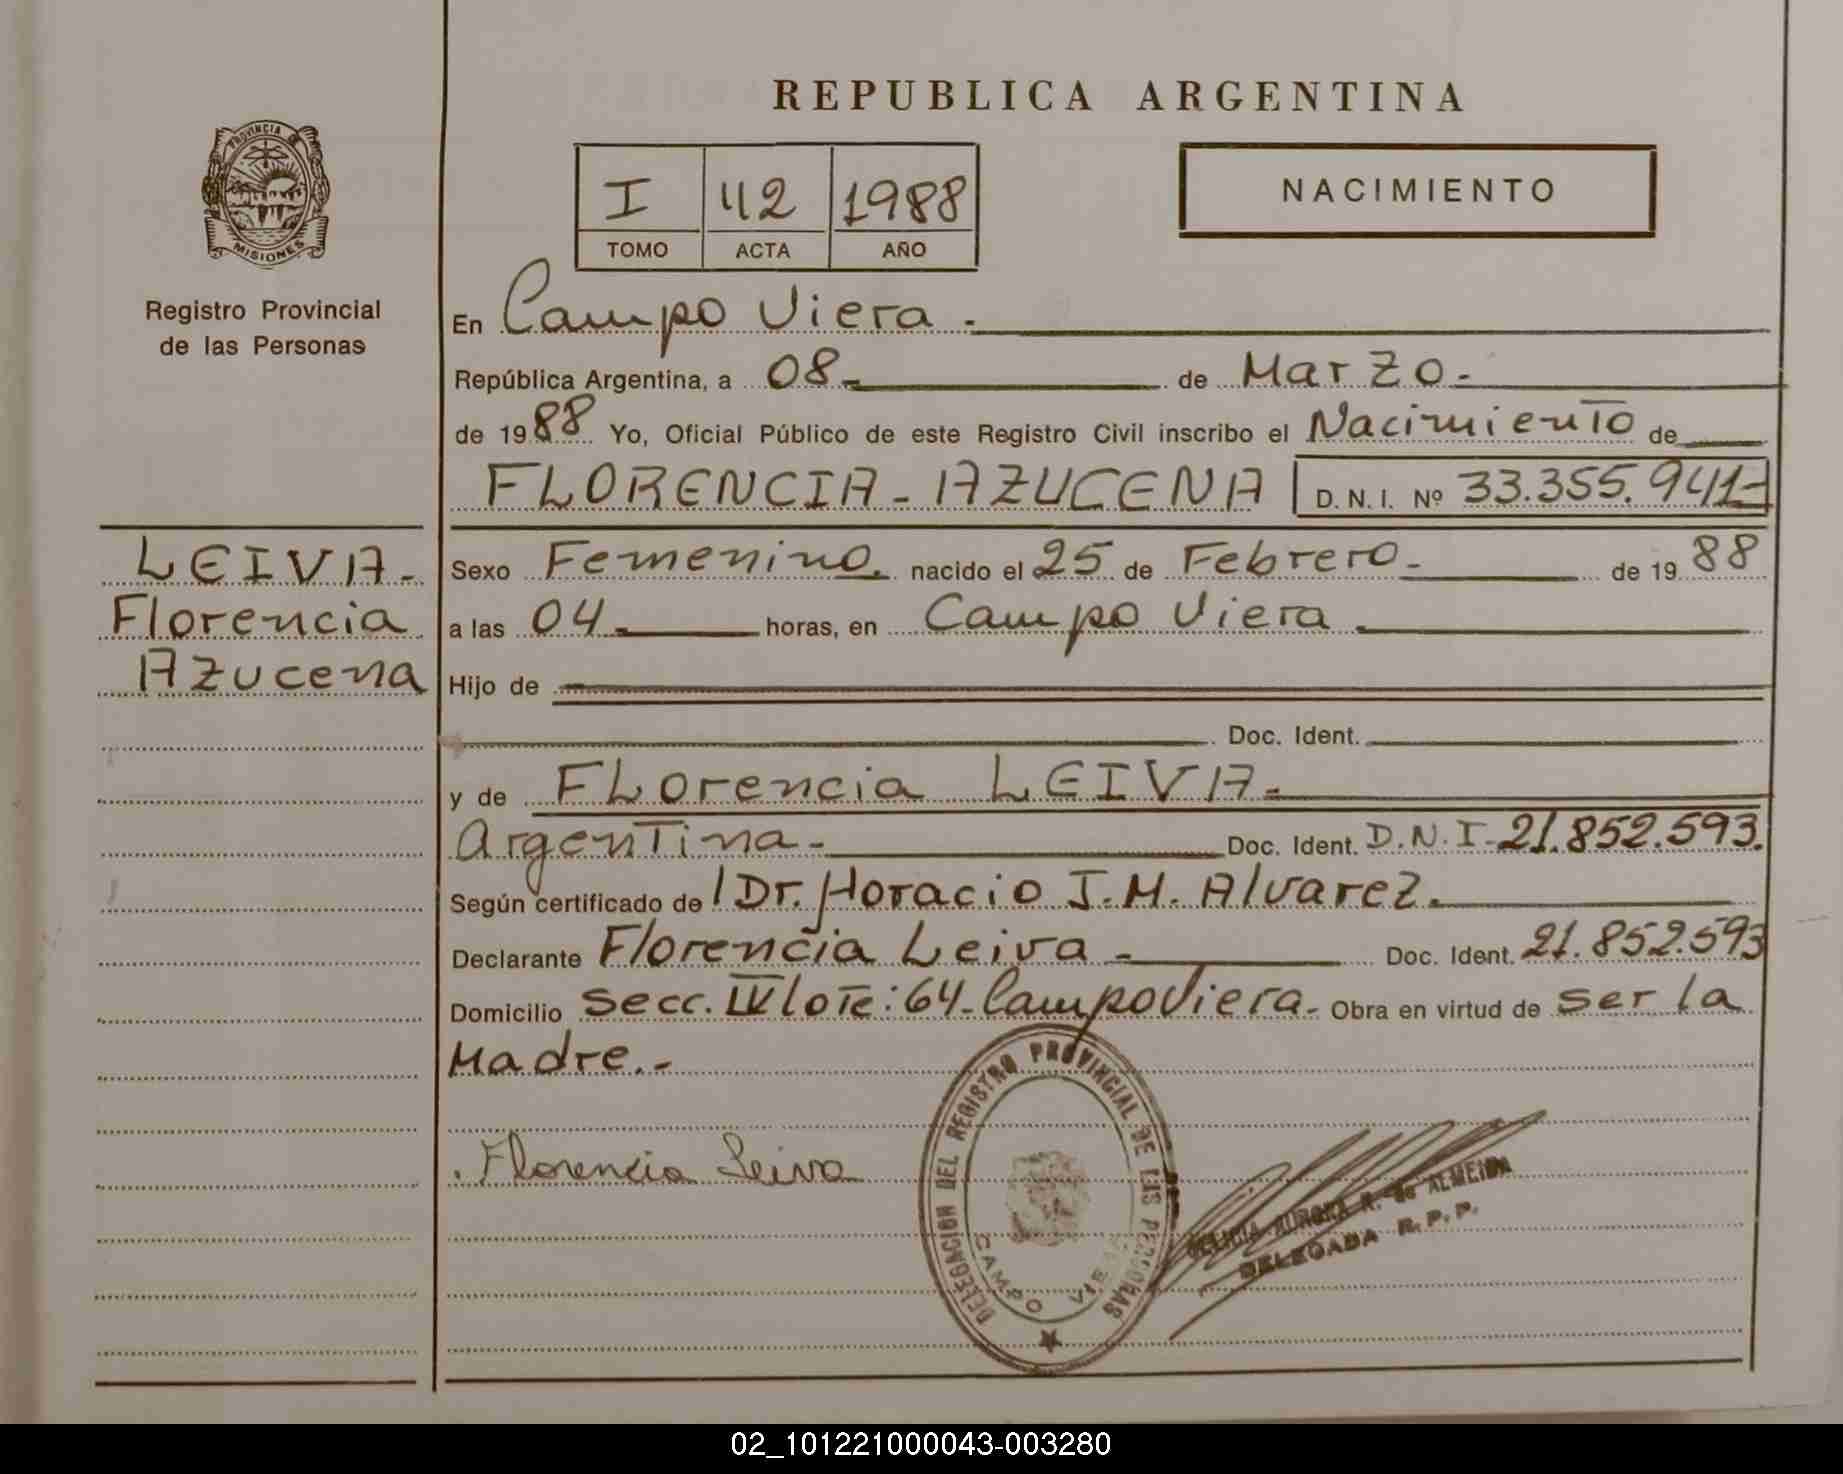 REPUBLICA ARGENTINA
PROVINCIA DE
MISIONES
Registro Provincial
de las Personas
I 42 1988
TOMO ACTA AÑO
NACIMIENTO
En Campo Viera.
República Argentina, a 08 de Marzo.
de 1988 Yo, Oficial Público de este Registro Civil inscribo el Nacimiento de
FLORENCIA - AZUCENA D.N.I. Nº 33.355.941-
LEIVA-
Florencia
Azucena
Sexo Femenino. nacido el 25 de Febrero. de 1988
a las 04 horas, en Campo Viera.
Hijo de
Doc. Ident.
y de FLorencia LEIVA.
Argentina- Doc. Ident. D.N.I-21.852.593.
Según certificado de Dr. Horacio J.M. Alvarez.
Declarante Florencia Leiva - Doc. Ident. 21.852.593
Domicilio Secc. IV lote: 64- Campo Viera. Obra en virtud de ser la
Madre.-
Florencia Leiva
DELEGACION DEL REGISTRO PROVINCIAL DE LAS PERSONAS
CAMPO VIERA
AURORA R. de ALMEIDA
DELEGADA R.P.P.
02_101221000043-003280